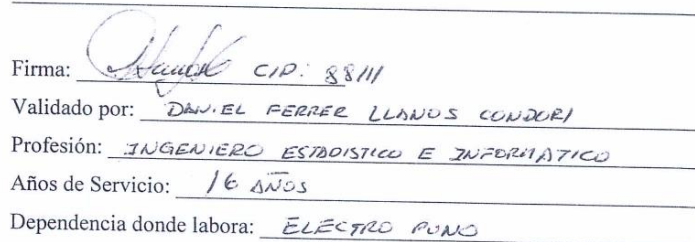 Firma: CIP: 88111
Validado por: DANIEL FERRER LLANOS CONDORI
Profesión: INGENIERO ESTADISTICO E INFORMATICO
Años de Servicio: 16 AÑOS
Dependencia donde labora: ELECTRO PUNO